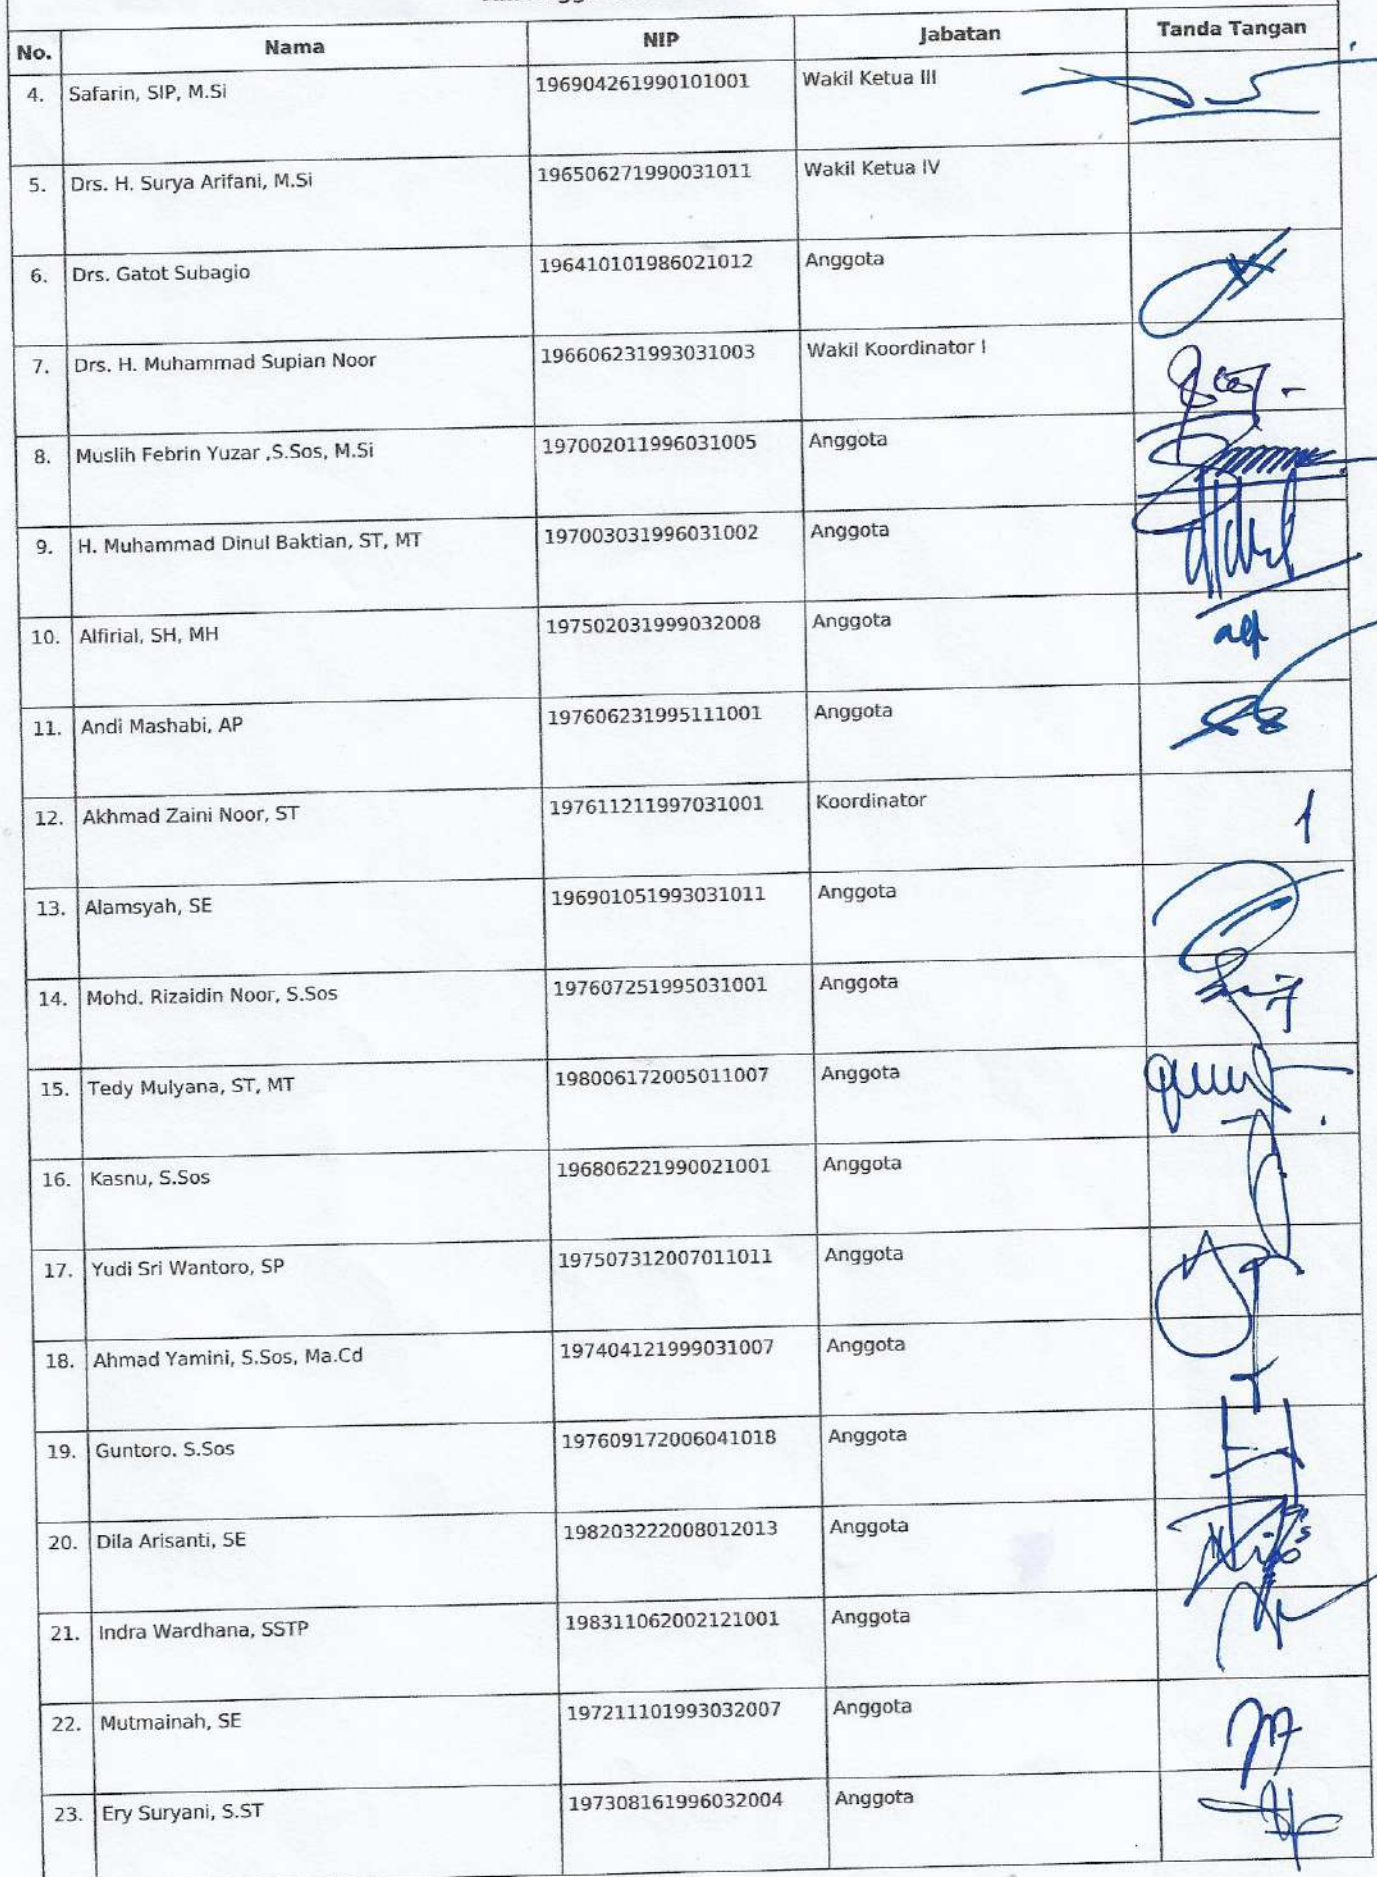 No. Nama NIP Jabatan Tanda Tangan
4. Safarin, SIP, M.Si 196904261990101001 Wakil Ketua III
5. Drs. H. Surya Arifani, M.Si 196506271990031011 Wakil Ketua IV
6. Drs. Gatot Subagio 196410101986021012 Anggota
7. Drs. H. Muhammad Supian Noor 196606231993031003 Wakil Koordinator I
8. Muslih Febrin Yuzar ,S.Sos, M.Si 197002011996031005 Anggota
9. H. Muhammad Dinul Baktian, ST, MT 197003031996031002 Anggota
10. Alfirial, SH, MH 197502031999032008 Anggota
11. Andi Mashabi, AP 197606231995111001 Anggota
12. Akhmad Zaini Noor, ST 197611211997031001 Koordinator
13. Alamsyah, SE 196901051993031011 Anggota
14. Mohd. Rizaidin Noor, S.Sos 197607251995031001 Anggota
15. Tedy Mulyana, ST, MT 198006172005011007 Anggota
16. Kasnu, S.Sos 196806221990021001 Anggota
17. Yudi Sri Wantoro, SP 197507312007011011 Anggota
18. Ahmad Yamini, S.Sos, Ma.Cd 197404121999031007 Anggota
19. Guntoro. S.Sos 197609172006041018 Anggota
20. Dila Arisanti, SE 198203222008012013 Anggota
21. Indra Wardhana, SSTP 198311062002121001 Anggota
22. Mutmainah, SE 197211101993032007 Anggota
23. Ery Suryani, S.ST 197308161996032004 Anggota